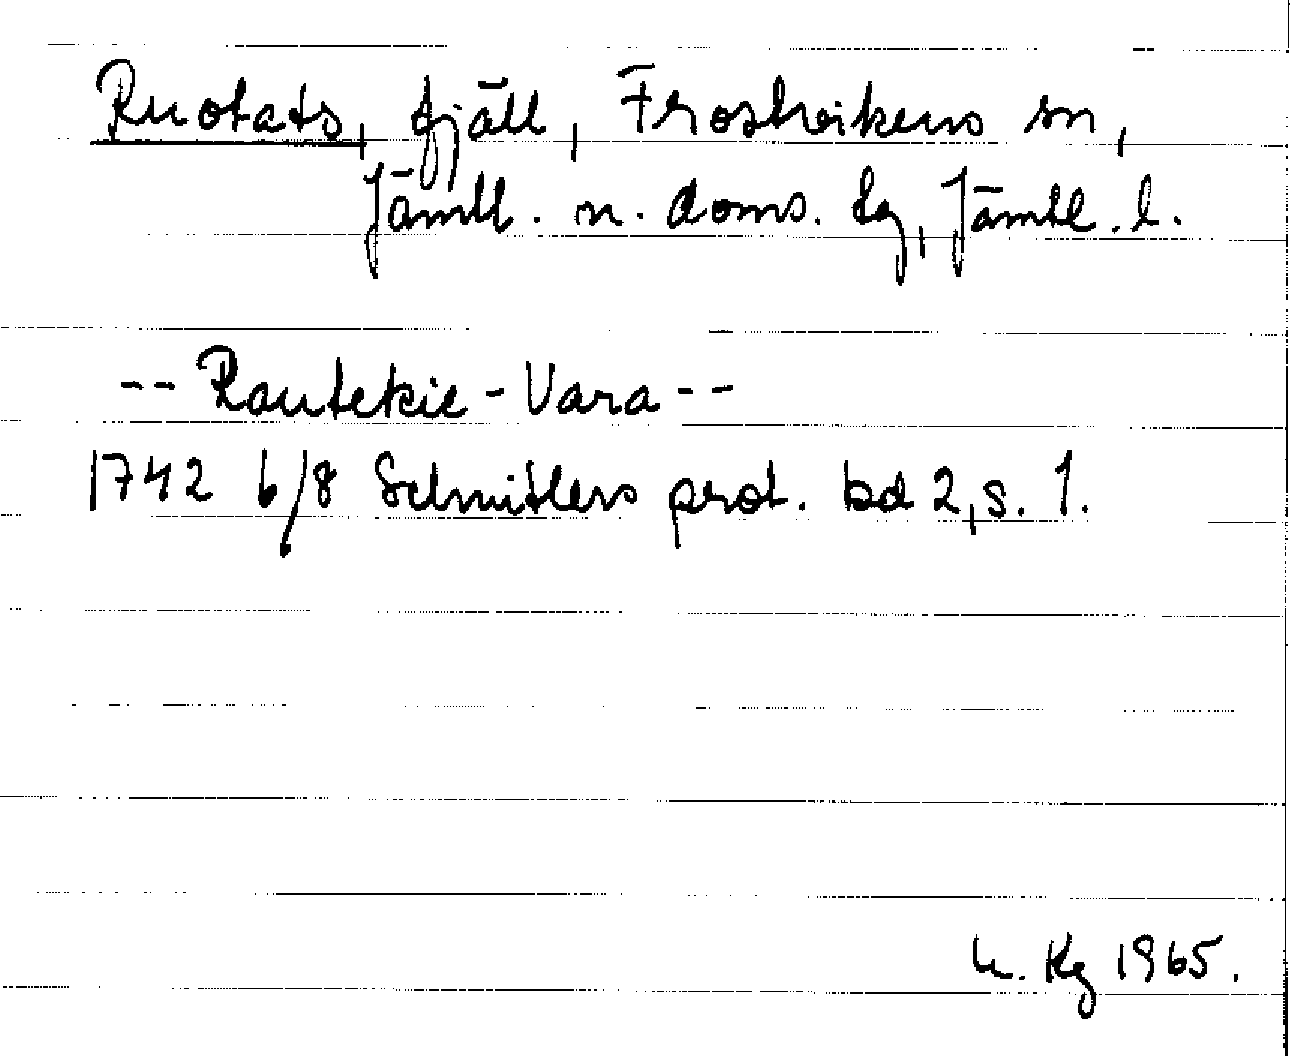 Ruotats, fjäll, Frostvikens sn,
Jämtl. n. doms. lg, Jämtl. l.
-- Rautekie - Vara --
1742 6/8 Schnitlers prot. bd 2, s. 1.
Kg 1965.